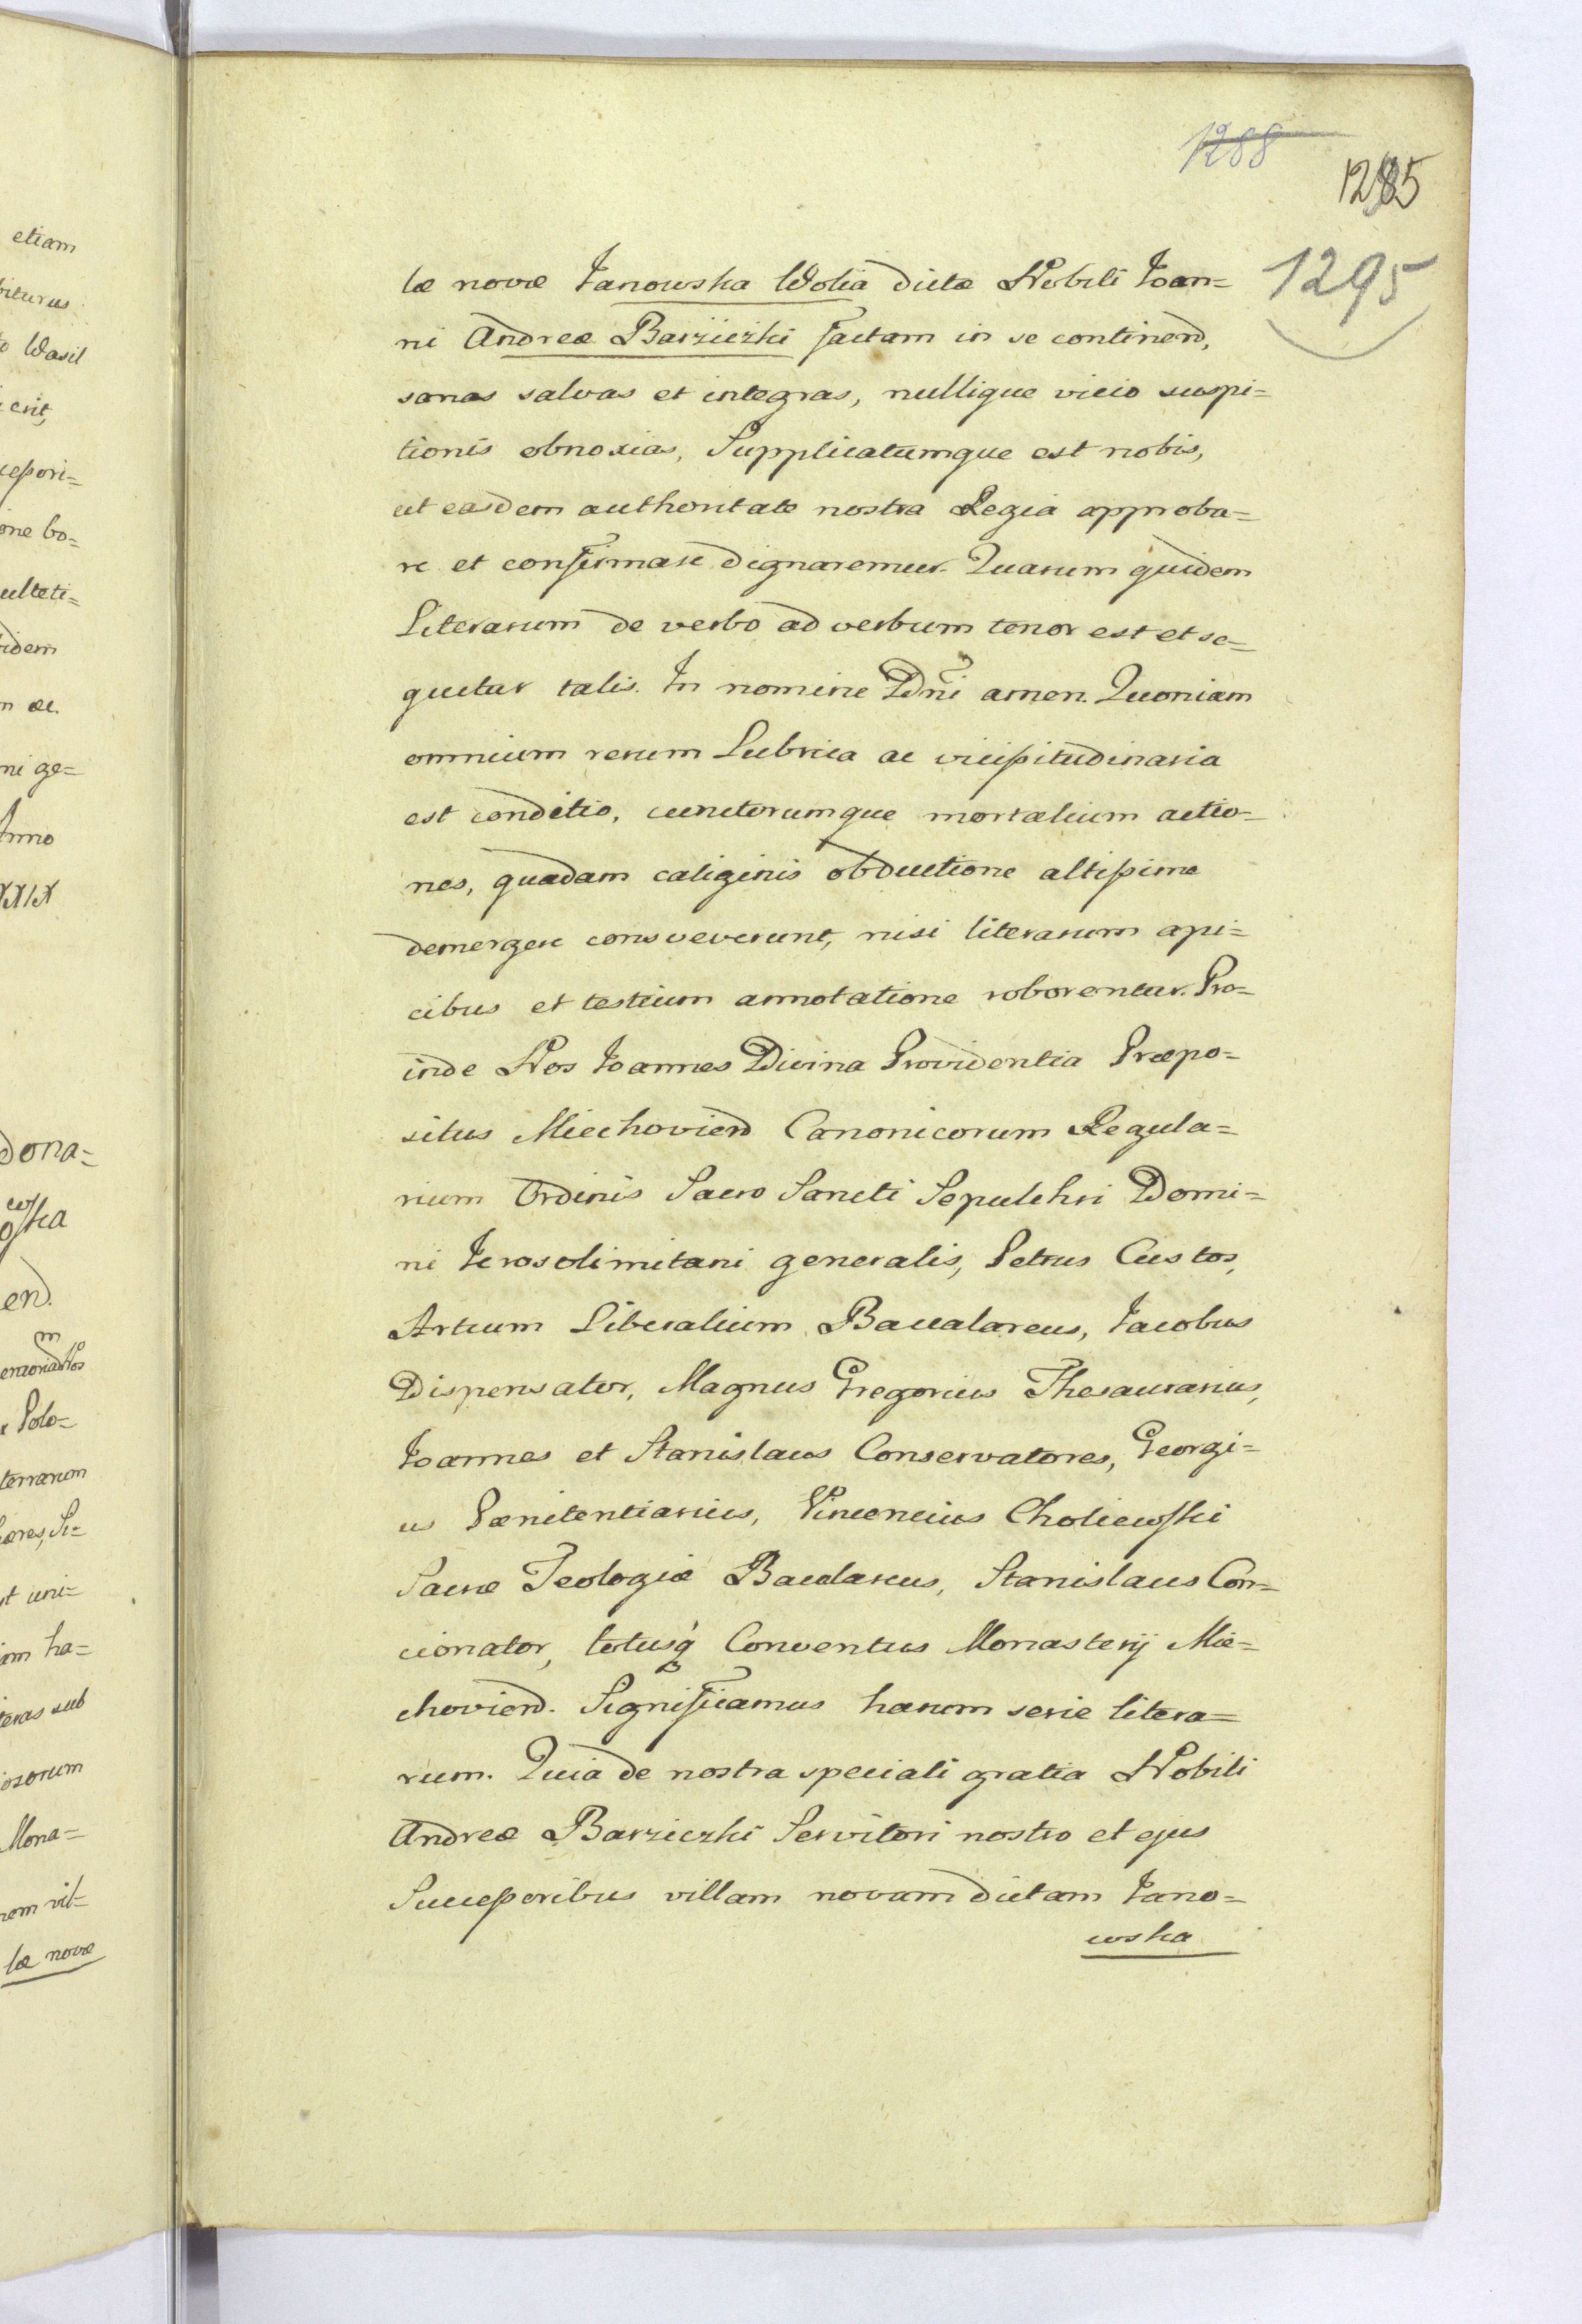 etiam
biturus
Wasil
erit,
cessori=
one bo=
ulteti=
idem
ni ge=
Anno
XXIX
Dona=
en.
Polo=
terrarum
t uni=
am ha=
teras sub
iosorum
Mona=
nem vil=
læ novæ
1288
1285
1295
læ novæ Janowska Wolia dictæ Nobili Joan=
ni Andreæ Barziczki factam in se continen,
sanas salvas et integras, nullique vicio suspi=
tionis obnoxias, Supplicatumque est nobis,
ut easdem authoritate nostra Regia approba=
re et confirmare dignaremur. Quarum quidem
Literarum de verbo ad verbum tenor est et se=
quitur talis. In nomine Dni amen. Quoniam
omnium rerum Lubrica ac vicissitudinaria
est conditio, cunctorumque mortalium actio=
nes, quadam caliginis obductione altissime
demergere consveverunt, nisi literarum api=
cibus et testium annotatione roborentur. Pro=
inde Nos Joannes Divina Providentia Præpo=
situs Miechovien Canonicorum Regula=
rium Ordinis Sacro Sancti Sepulchri Domi=
ni Jerosolimitani generalis, Petrus Custos,
Artium Liberalium Baccalareus, Jacobus
Dispensator, Magnus Gregorius Thesaurarius,
Joannes et Stanislaus Conservatores, Georgi=
us Pænitentiarius, Vincencius Choliewski
Sacræ Teologiæ Bacalareus, Stanislaus Con=
cionator, totusq Conventus Monasterij Mie=
chovien. Significamus harum serie litera=
rum. Quia de nostra speciali gratia Nobili
Andreæ Barziczki Servitori nostro et ejus
Successoribus villam novam dictam Jano=
wska